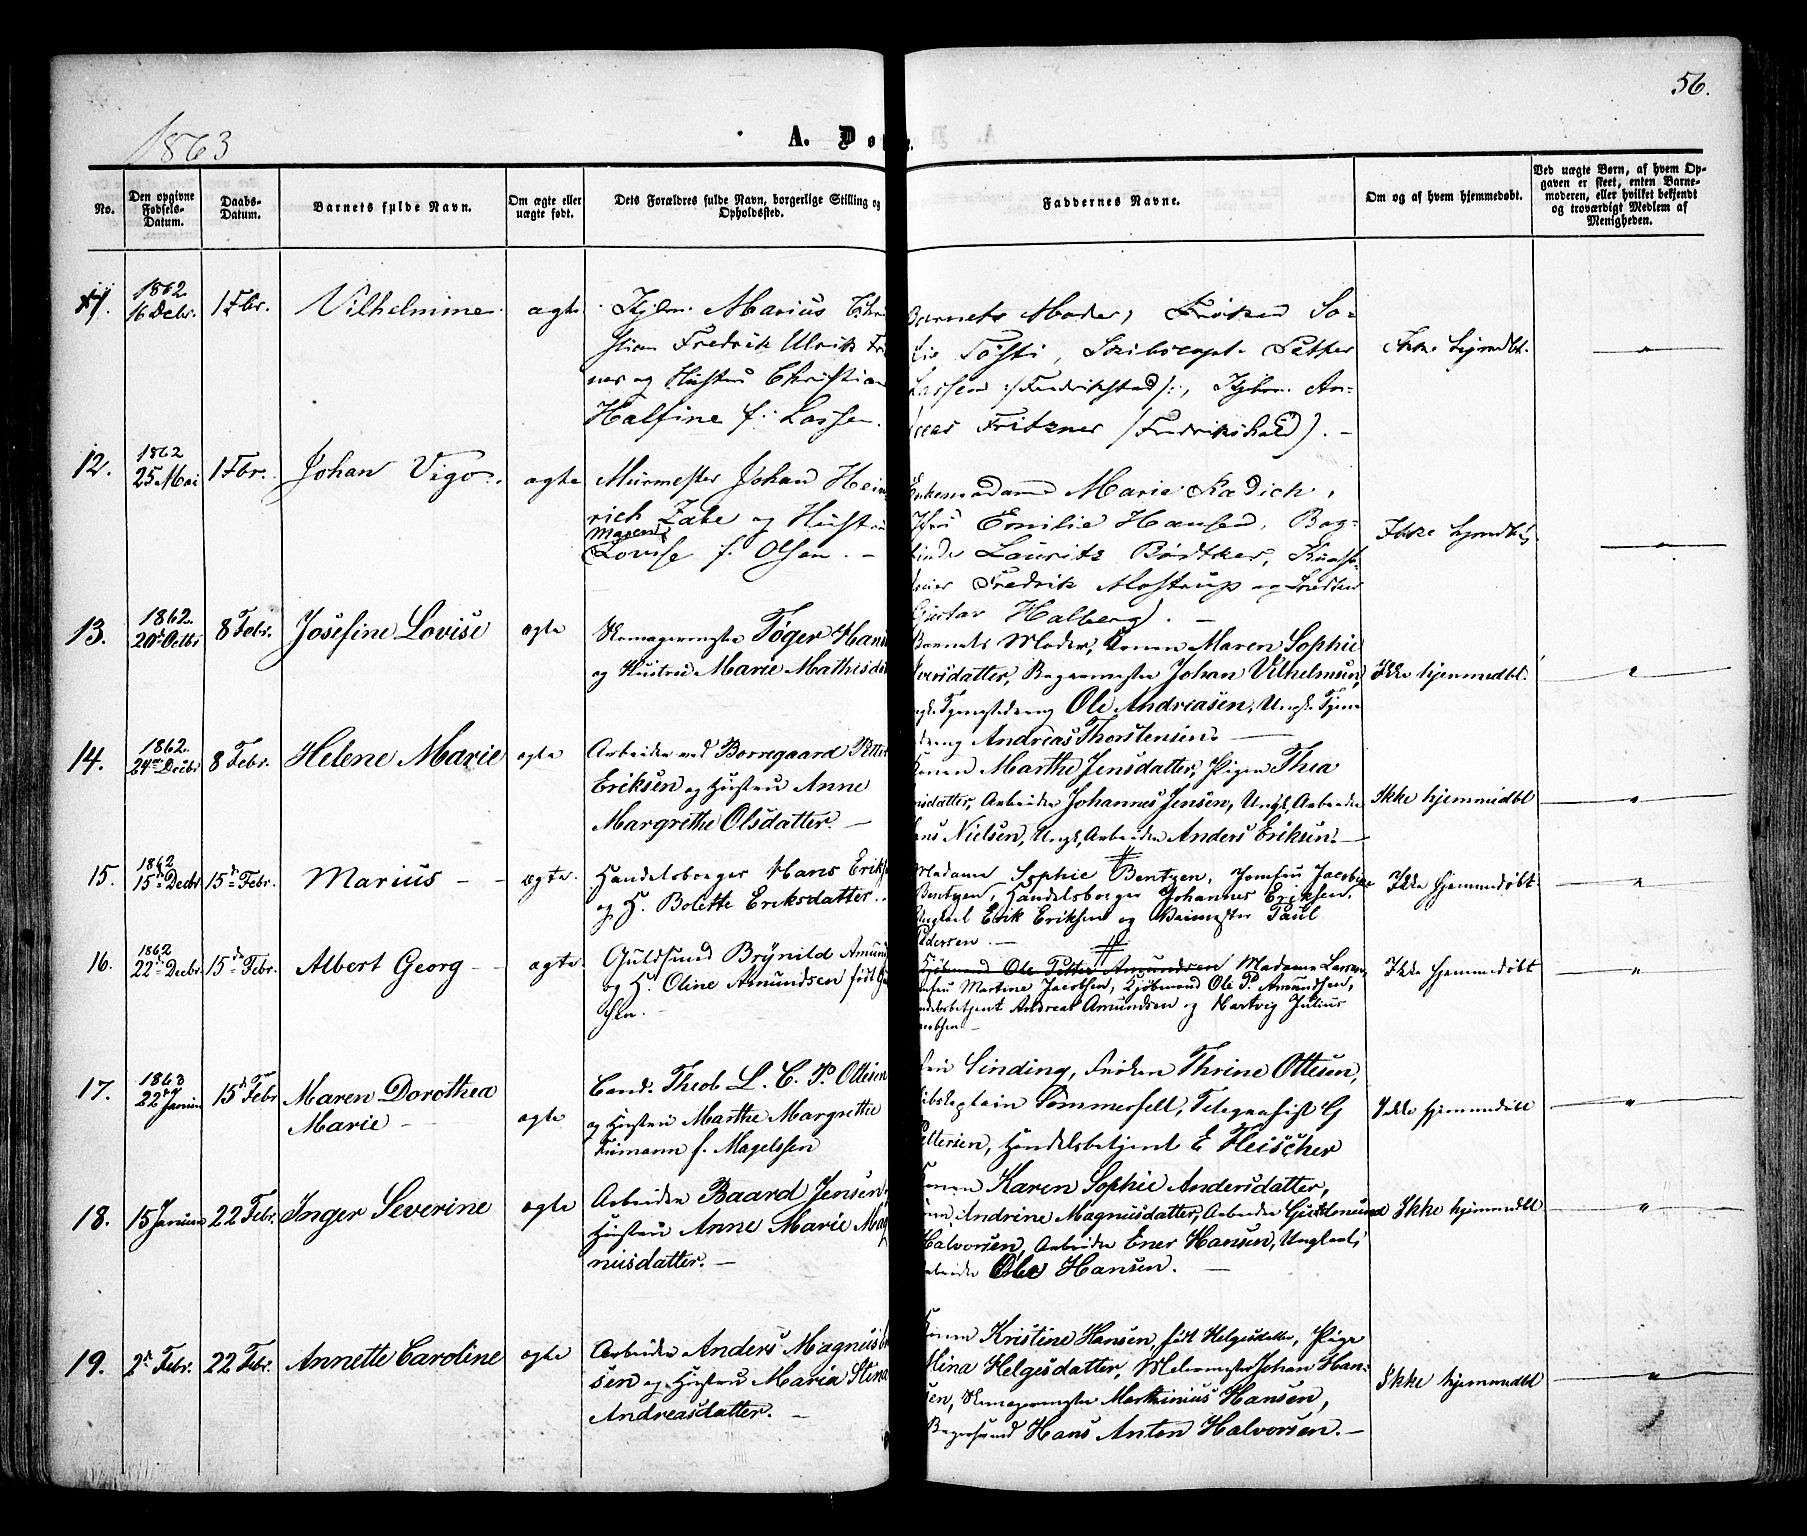 56.
1863
A. Dø
No.
Den opgivne Fødsels-Datum.
Daabs-Datum.
Barnets fulde Navn.
Om ægte eller uægte født.
Dets Forældres fulde Navn, borgerlige Stilling og Opholdssted.
Faddernes Navne.
Om og af hvem hjemmedøbt.
Ved uægte Børn, af hvem Opgaven er skeet, enten Barnemoderen, eller hvilket bekjendt og troværdigt Medlem af Menigheden.
11. 1862 16 Debr. 1 Fbr. Vilhelmine. ægte
Kjbm. Marius Chri
stian Fredrik Ulrik Fri
ner og Hustru Christiane
Halfine f. Lassen.
Barnets Moder, Frøken So-
fie Tosti, Skibscapt. Petter
Lassen /: Fredrikstad :/, Kjbm. An-
dreas Fritzner (Fredrikshald). —
Ikke hjmdbt.
12. 1862 25 Mai 1 Fbr. Johan Vigo. ægte
Murmester Johan Hein
rich Zabe og Hustru
Maren
Lovise f. Olsen. —
Enkemadame Marie Radich,
Jfru Emilie Hansen, Bog-
binder Lauritz Bødtker,
Fredrik Mostrup og
Gustav Halberg). —
Ikke hjmdbt
13. 1862. 20de Octbr 8 Febr. Josefine Lovise ægte
Skomagermester Tøger Hans
og Hustru Marie Mathisdat
Barnets Moder, Konen Maren Sophie
Iversdatter, Bagermester Johan Vilhelmsen,
Ungk. Tjenestedreng Ole Andreasen, Ungk. Tjene
dreng Andreas Thorstensen. —
Ikke hjemmedbt.
14. 1862. 24de Decbr 8 Febr. Helene Marie ægte
Arbeider ved Borregaard Petter
Eriksen og Hustru Anne
Margrethe Olsdatter. —
Konen Marthe Jensdatter, Pigen Thea
nsdatter, Arbeider Johannes Jensen, Ungk. Arbeider
Hans Nielsen, Ungk. Arbeider Anders Eriksen. —
Ikke hjemmedbt
15. 1862 15de Decbr 15de Febr. Marius — ægte.
Handelsborger Hans Eriks
og H. Bolette Eriksdatter.
Madame Sophie Bentzen, Jomfru Jacobine
Bentzen, Handelsborger Johannes Eriksen,
Ungkarl Erik Eriksen og Paul
Pedersen. —
Ikke hjemmedøbt.
16. 1862 22de Decbr. 15de Febr. Albert Georg — ægte.
Guldsmed Brynild Amund
og H. Oline Amundsen født
sen. —
Kjøbmand Ole Petter Amundsen Madame Larsen,
Jomfru Martine Jacobsen, Kjøbmand Ole P. Amundsen,
Handelsbetjent Andreas Amundsen og Hartvig Julius
Jacobsen —
Ikke hjemmedøbt
17. 1863 22de Januar 15de Febr Maren Dorothea
Marie — ægte
Cand. Theol. L. C. P. Ottesen
og Hustru Marthe Margrethe
Tiemann f. Magelssen
Sinding, Frøken Thrine Ottesen,
Skibskaptain Sommerfelt, Telegrafist G
Pettersen, Handelsbetjent E Fleischer
Ikke hjemmedøbt
18. 15 Januar 22 Febr. Inger Severine ægte
Arbeider Baard Jensen,
Hustru Anne Marie Mag
nusdatter. —
Konen Karen Sophie Andersdatter,
Andrine Magnusdatter, Arbeider Guldmund
Halvorsen, Arbeider Ener Hansen, Ungkarl,
Arbeider Ole Hansen. —
Ikke hjemmedbt
19. 2de Febr. 22 Febr. Annette Caroline ægte
Arbeider Anders Magnus
sen og Hustru Maria Stina
Andreasdatter. —
Konen Kristine Hansen, født Helgesdatter, Pige
Mina Helgesdatter, Murermester Johan Han-
sen, Skomagermester Marthinius Hansen,
Bagersvend Hans Anton Halvorsen. —
Ikke hjemmedbt